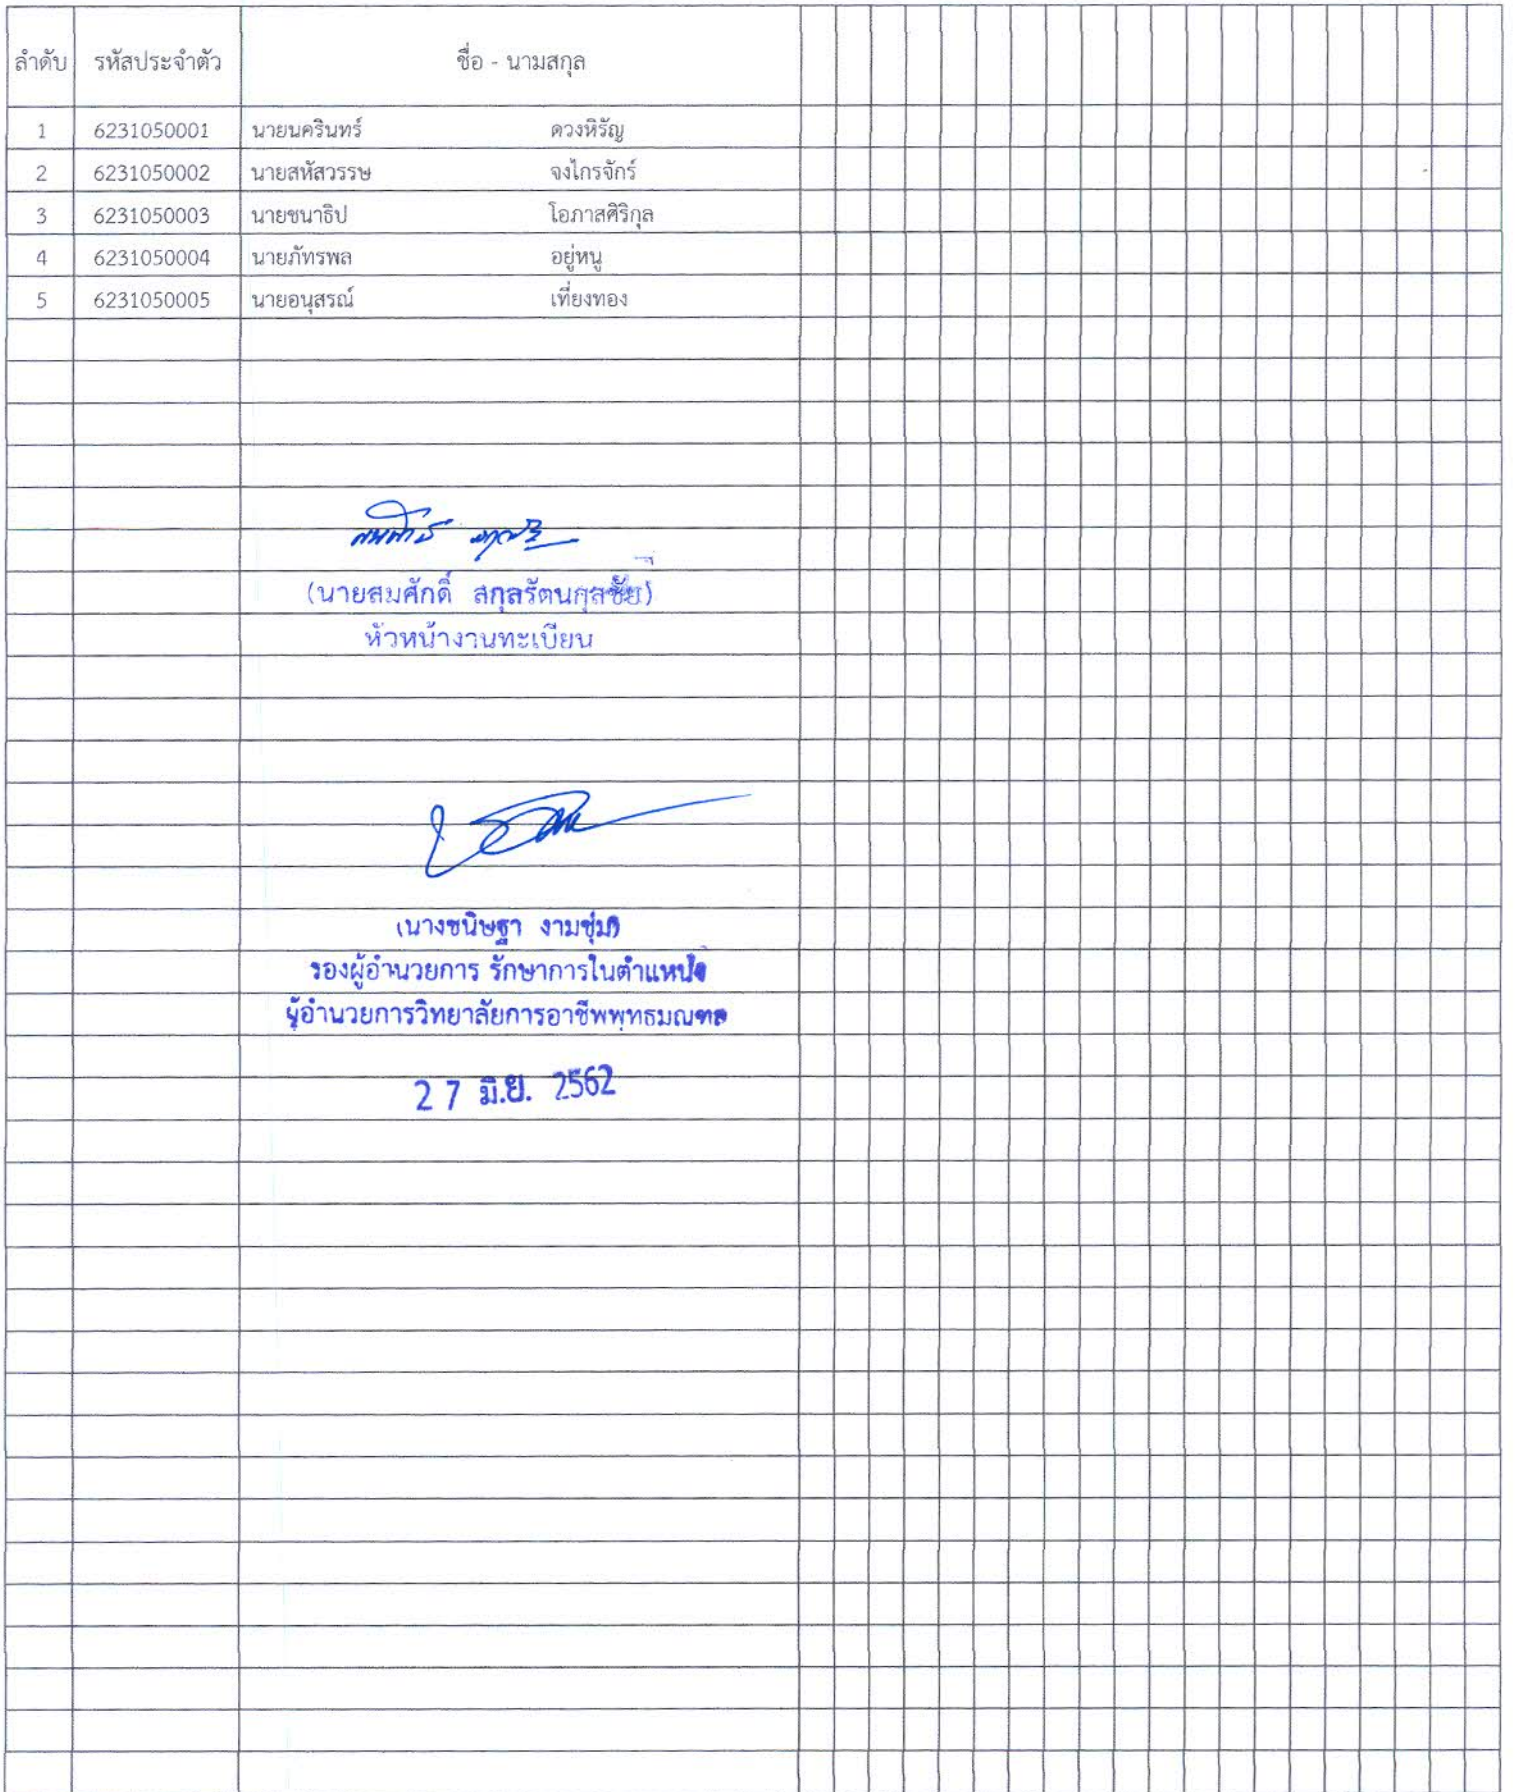 ลำดับ รหัสประจำตัว ชื่อ - นามสกุล
1 6231050001 นายนครินทร์ ดวงหิรัญ
2 6231050002 นายสหัสวรรษ จงไกรจักร์
3 6231050003 นายชนาธิป โอภาสศิริกุล
4 6231050004 นายภัทรพล อยู่หนู
5 6231050005 นายอนุสรณ์ เที่ยงทอง
(นายสมศักดิ์ สกุลรัตนกุลชัย)
หัวหน้างานทะเบียน
(นางชนิษฐา งามชุ่ม)
รองผู้อำนวยการ รักษาการในตำแหน่ง
ผู้อำนวยการวิทยาลัยการอาชีพพุทธมณฑล
27 มิ.ย. 2562